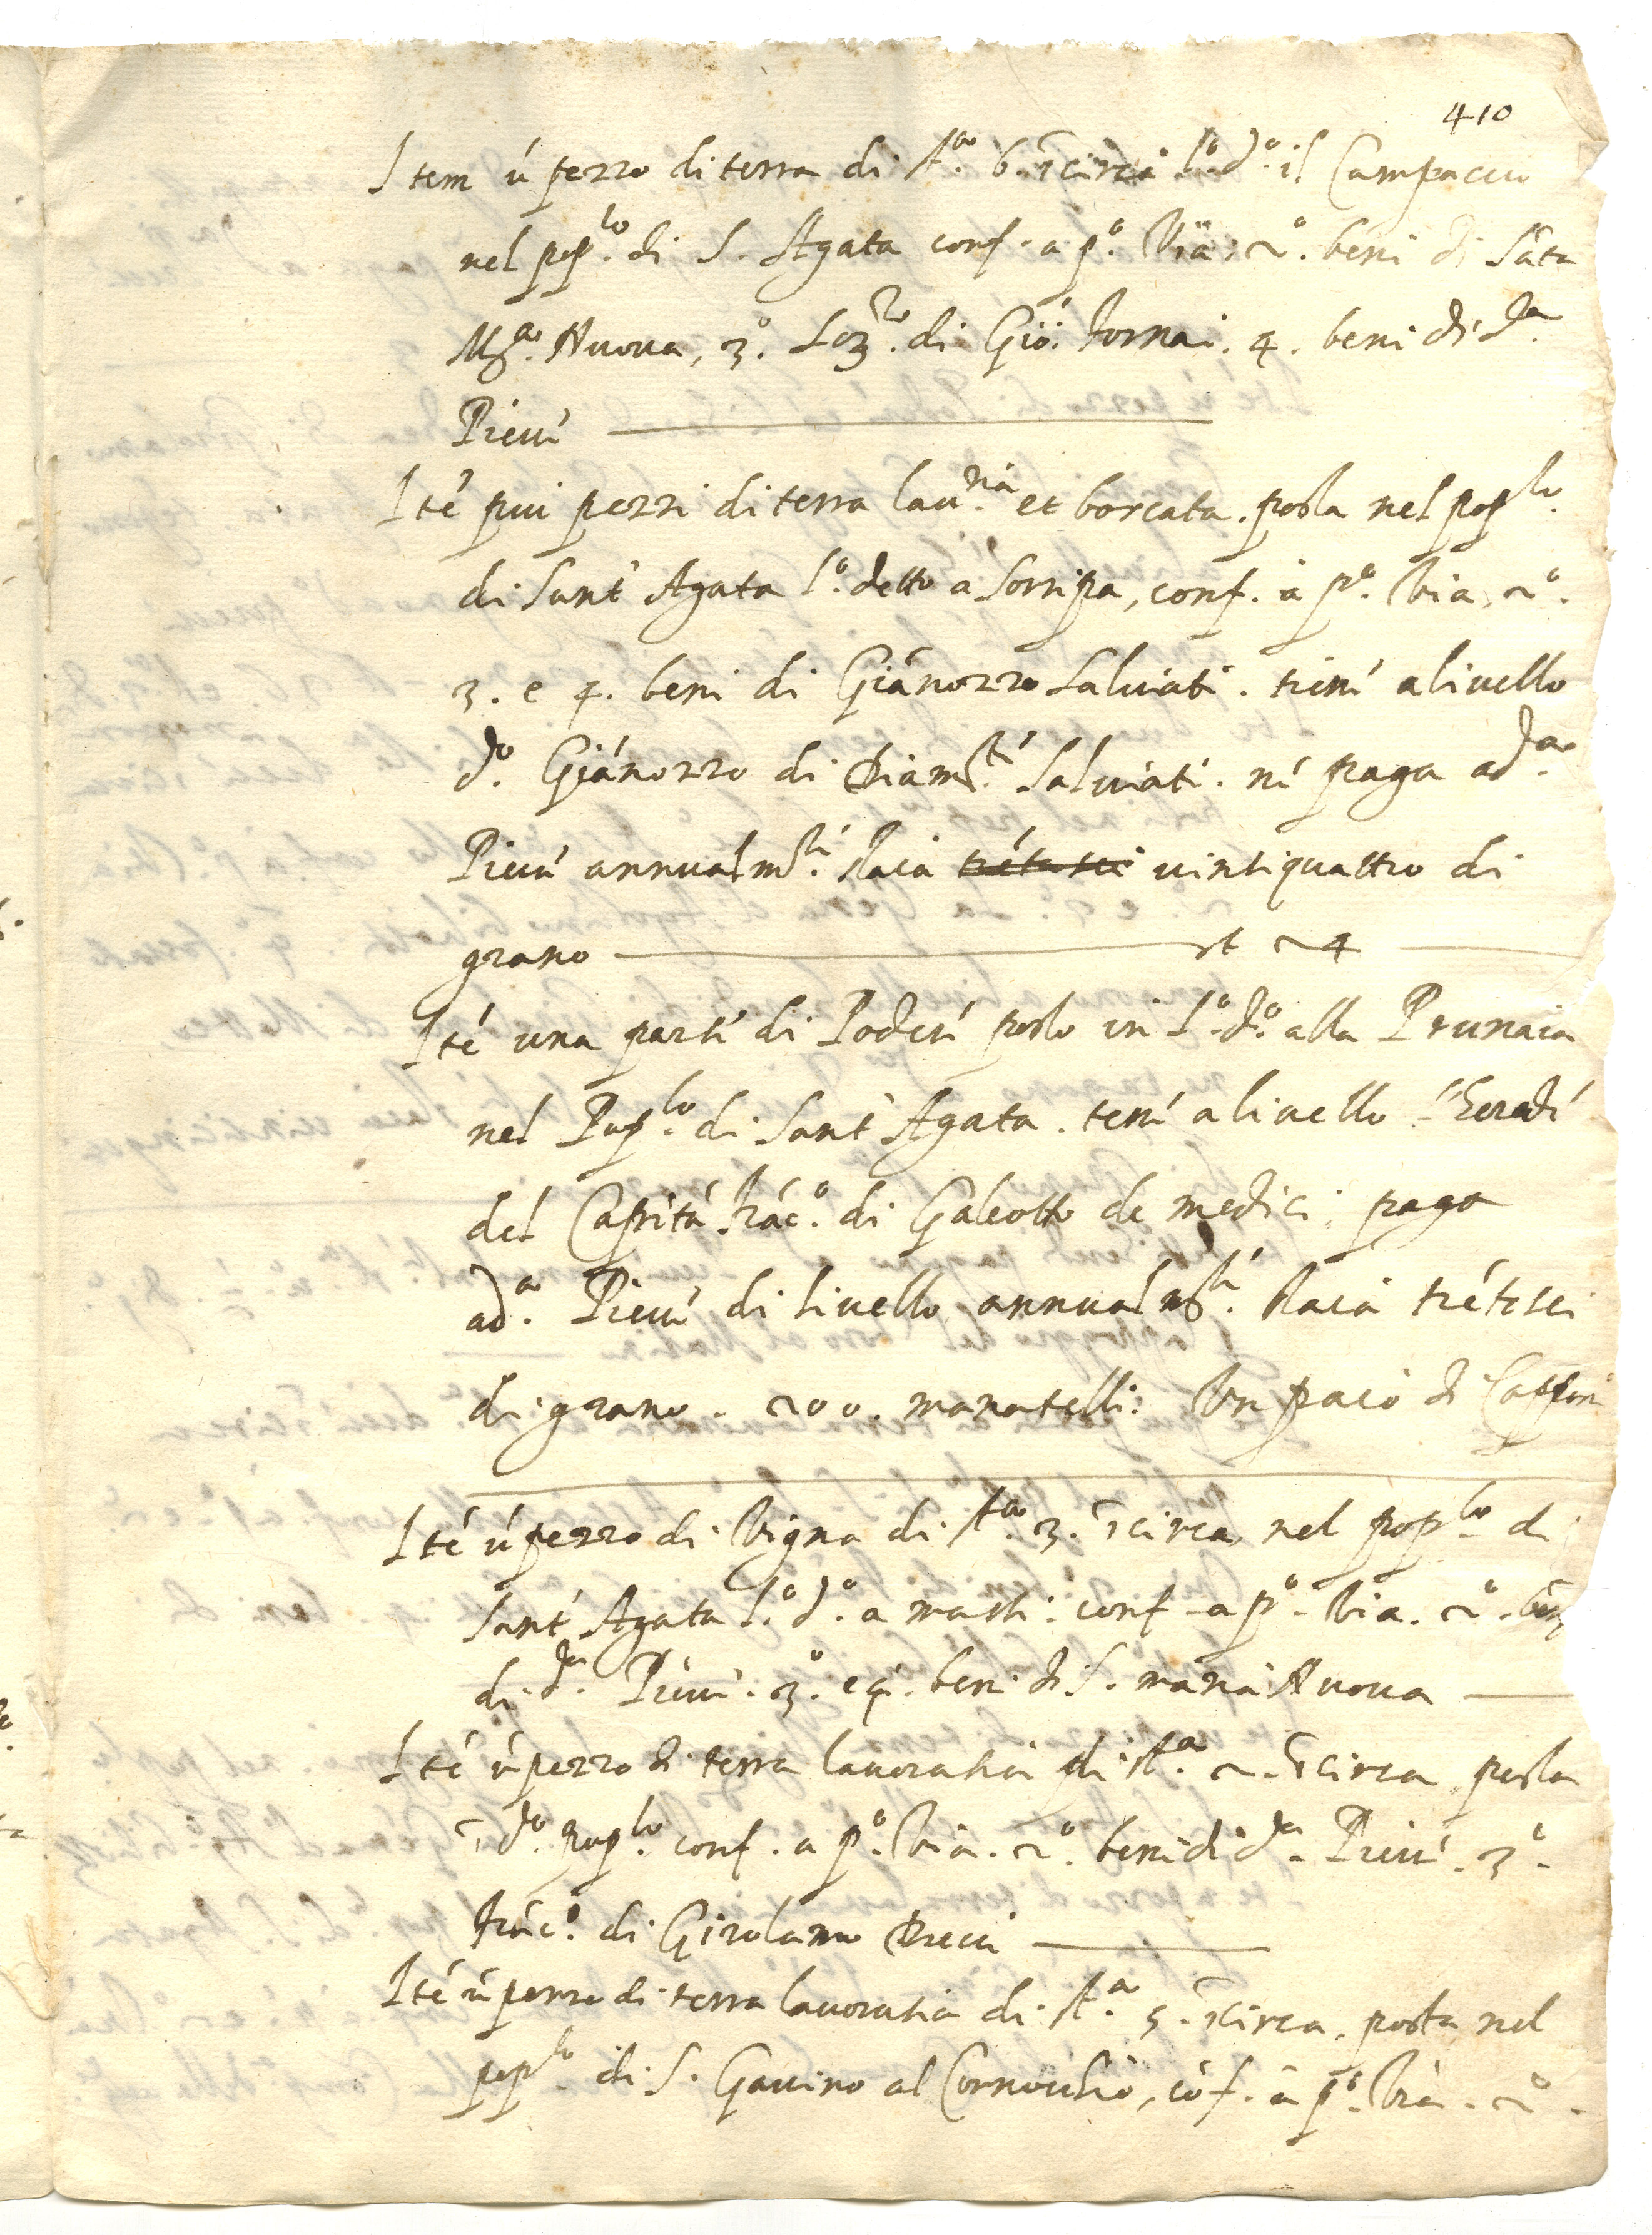 410
Item ú pezzo di terra di st.ª 6. ī circa l.º d.º il Campaccio
nel pop.lo di S. Agata conf. a p.º Via, 2.º beni di Sāta
M.ª Nuova, 3.º Lor.zo di Giō: Fornai. 4. beni di d.ª
Pieve
Itē piu pezzi di terra lau.ria et boscata. posta nel pop.lo
di Sant' Agata l.º detto a Sorripa, conf. à p.º Via, 2.º
3. e 4. beni di Giānozzo Salviati. tiene a livello
d.º Giānozzo di Salviati. ne paga a d.ª
Pieve annualm.te staia trēta sei vintiquattro di
grano st 24
Itē una parte di Podere posto in l.º d.º alla Prunaia
nel Pop.lo di Sant' Agata. tene a livello l'herede
del Capitā Frāc.º di Galeotto de medici, paga
a d.ª Pieve di livello annualm.te staia trētesei
di grano. 200. manatelli: Un paio di Capponi
Itē ú pezzo di Vigna di st.ª 3. ī circa, nel pop.lo di
Sant' Agata l.º d.º a conf. a p.º Via. 2.º beni
di d.ª Pieve. 3.º e 4. beni di S. maria Nuova
Itē ú pezzo di terra lavoratia di st.ª 2. ī circa posta
ī d.º pop.lo conf. a p.º Via. 2.º beni di d.ª Pieve. 3.º
Frāc.º di Girolamo
Itē ú pezzo di terra lavoratia di st.ª 5. ī circa, posta nel
pop.lo di S. Gavino al Cornocchio, cōf. à p.º Via. 2.º